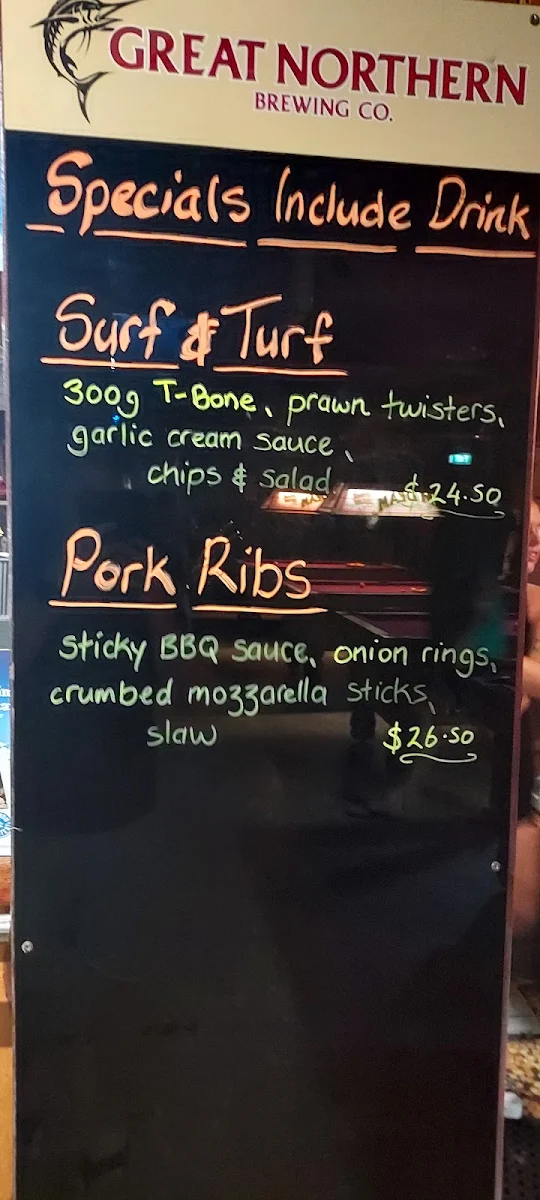 GREAT NORTHERN
BREWING CO.
Specials Include Drink
Surf & Turf
300g T-Bone, prawn twisters,
garlic cream sauce,
chips & salad $24.50
Pork Ribs
Sticky BBQ sauce, onion rings,
crumbed mozzarella sticks,
slaw $26.50